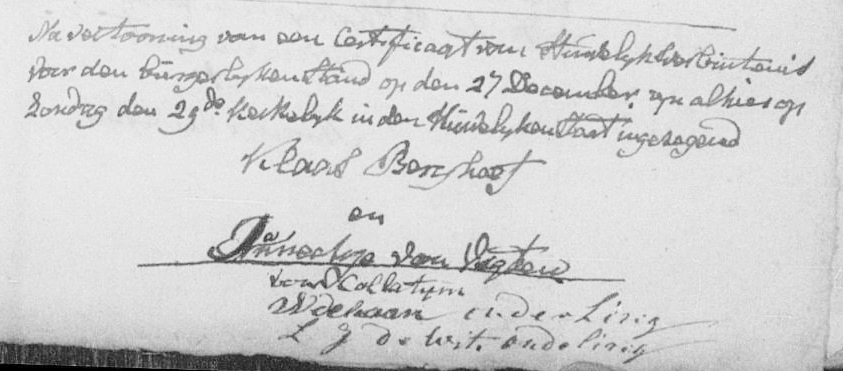 Na vertooning van een Certificaat van Huwelyksverbintenis
voor den burgerlyken stand op den 27 December, zyn alhier op
Zondag den 29de kerkelyk in den Huwelyken staat ingezegend
Klaas Berghoef
en
Annaetje van Vegten
voor Collatum
W de haan ouderling
L J de Wit. ouderling